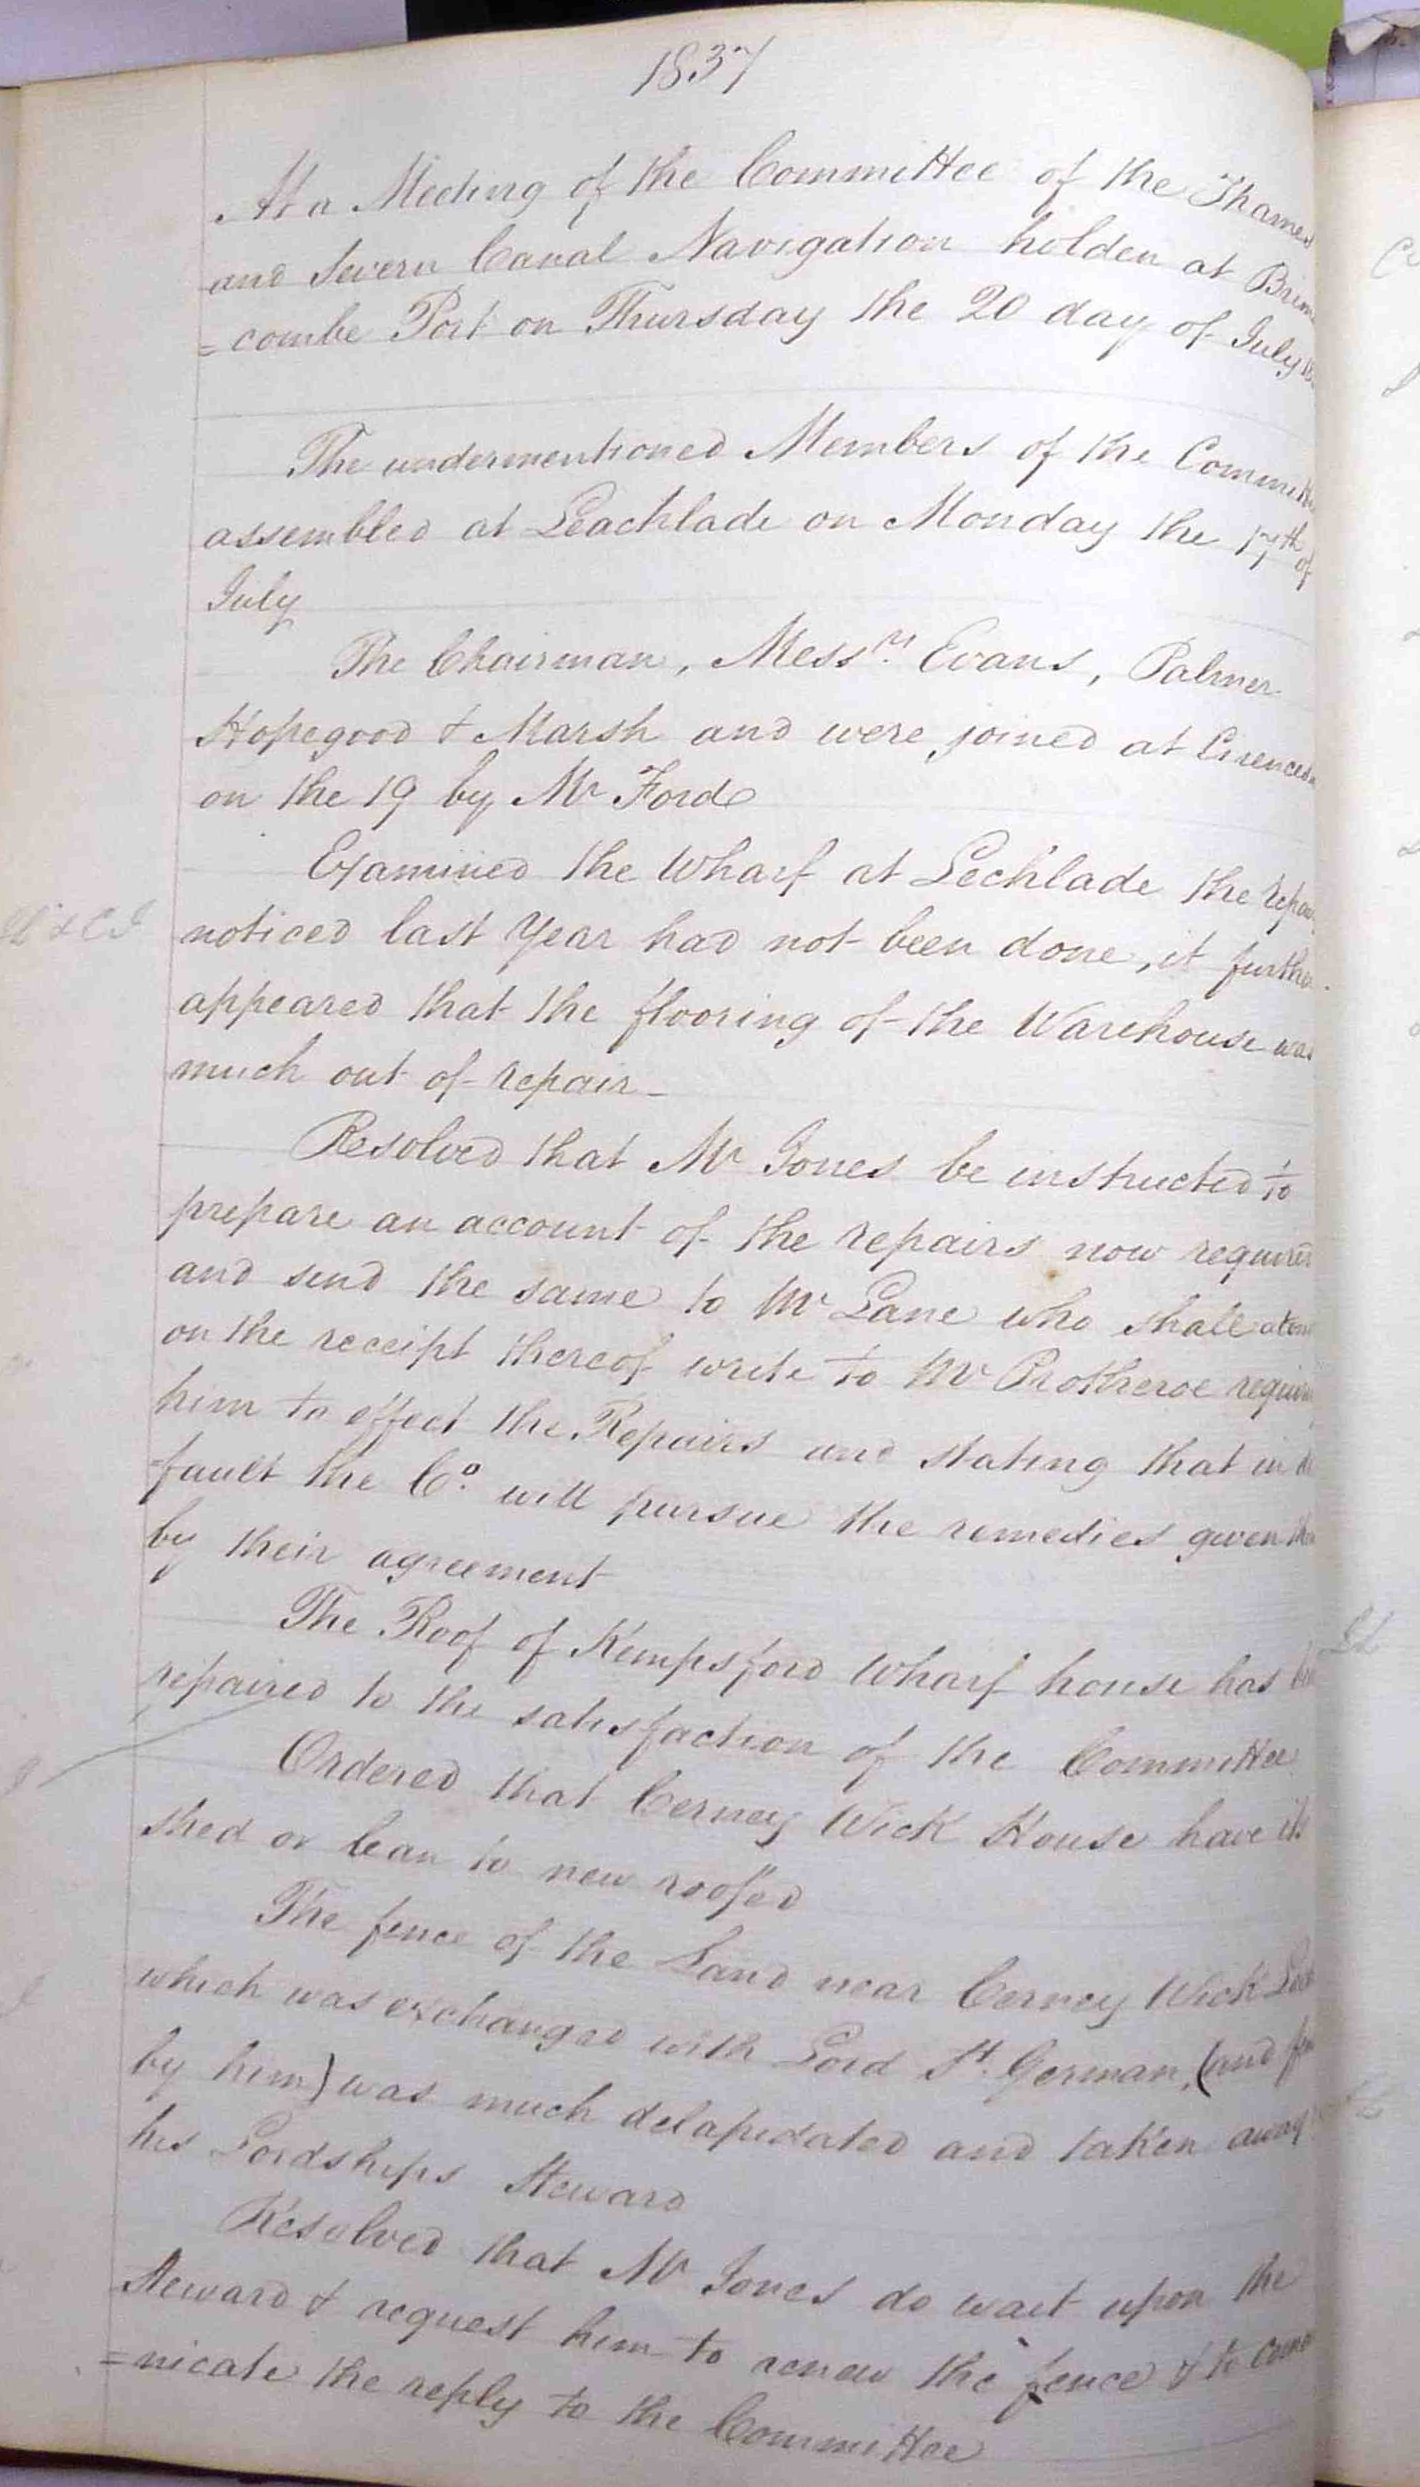 1837
At a Meeting of the Committee of the Thames
and Severn Canal Navigation holden at Brims
=combe Port on Thursday the 20 day of July
The undermentioned Members of the Committee
assembled at Leachlade on Monday the 17th of
July
The Chairman, Messrs. Evans, Palmer
Hopegood & Marsh and were joined at Cirences
on the 19 by Mr Ford
Examined the Wharf at Lechlade the repairs
noticed last Year had not been done, it further
appeared that the flooring of the Warehouse was
much out of repair_
Resolved that Mr Jones be instructed to
prepare an account of the repairs now required
and send the same to Mr Lane who shall
on the receipt thereof write to Mr Protheroe requiring
him to effect the Repairs and stating that in de
=fault the Co. will pursue the remedies given them
by their agreement
The Roof of Kempsford Wharf house has been
repaired to the satisfaction of the Committee
Ordered that Cerney Wick House have its
shed or lean to new roofed
The fence of the Land near Cerney Wick Lock
which was exchanged with Lord St. German, (and
by him) was much delapidated and taken away
his Lordships Steward
Resolved that Mr Jones do wait upon the
Steward & request him to renew the fence & to commu
=nicate the reply to the Committee